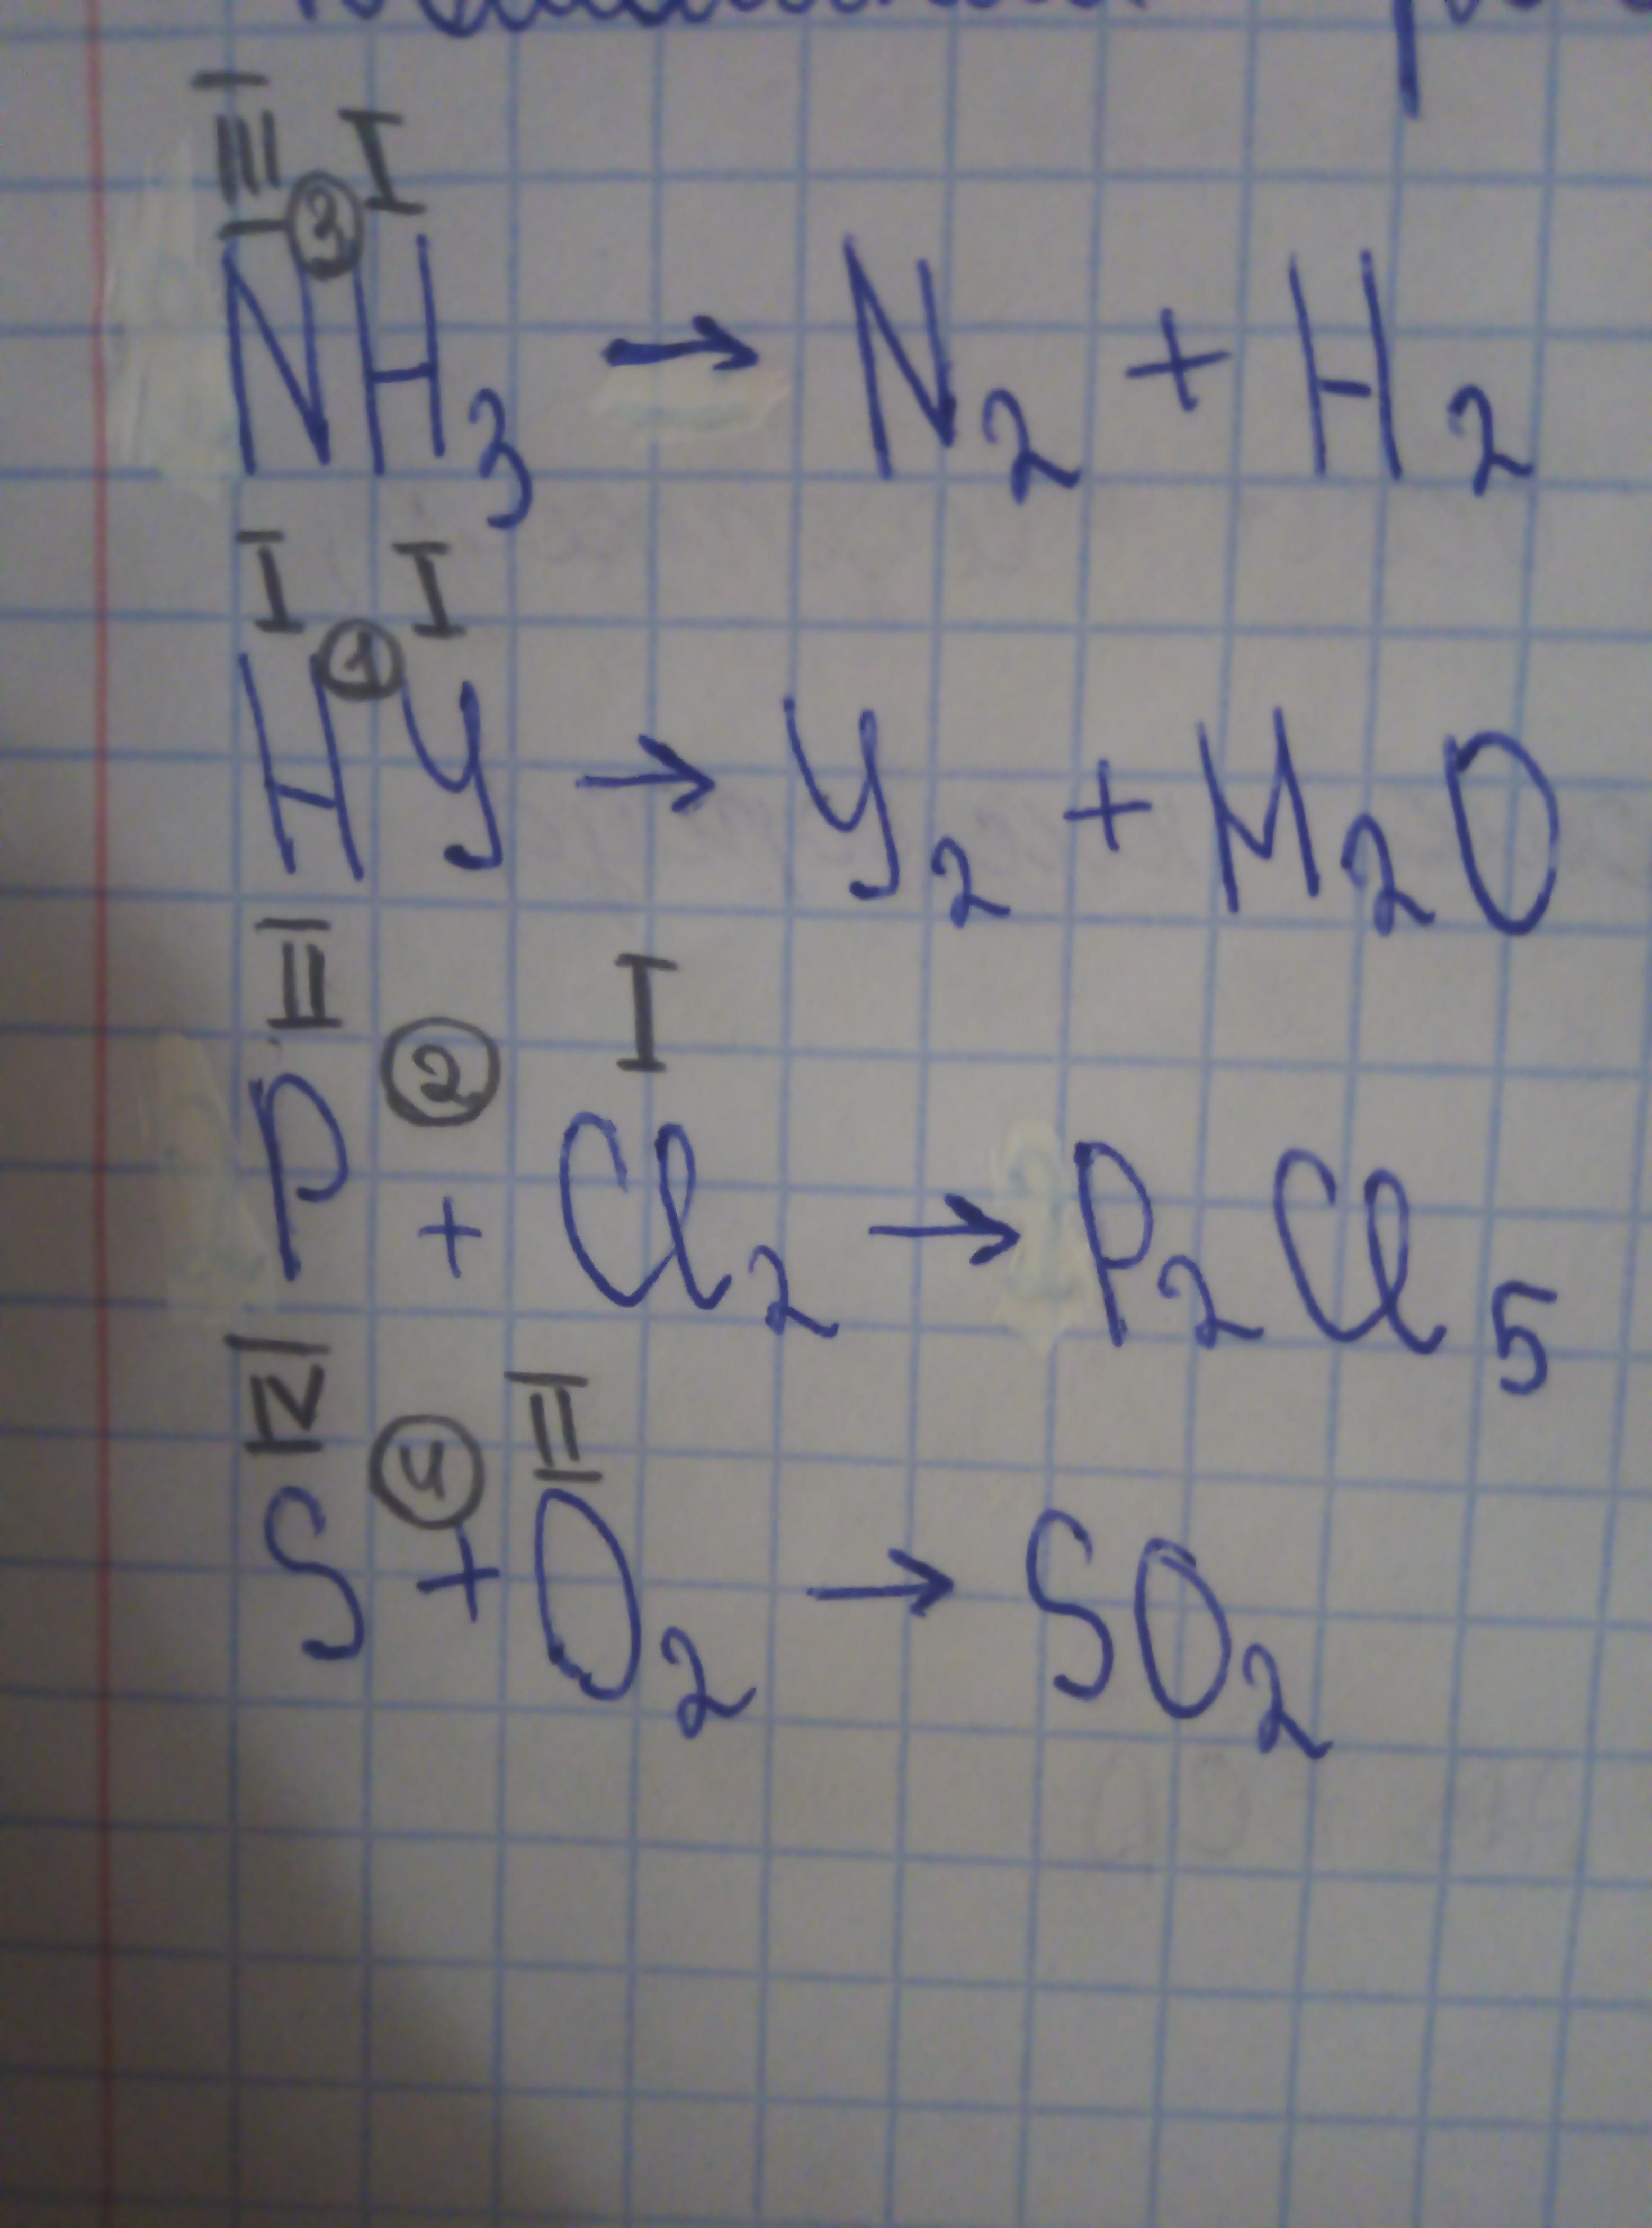 III I
③
NH₃ → N₂ + H₂
I I
①
HY → Y₂ + M₂O
II I
②
P + Cl₂ → P₂Cl₅
IV II
④
S + O₂ → SO₂